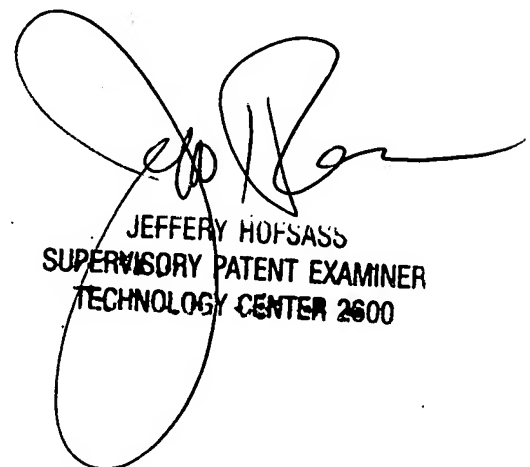 JEFFERY HOFSASS
SUPERVISORY PATENT EXAMINER
TECHNOLOGY CENTER 2600